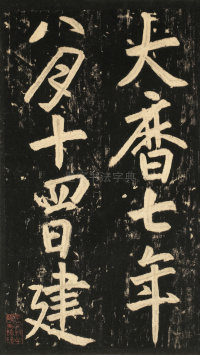 大曆七年
八月十四日建